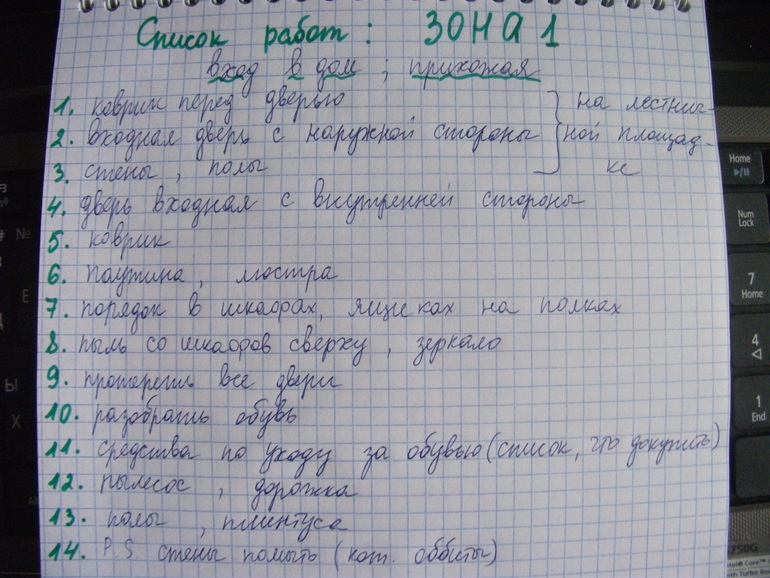 Список работ: ЗОНА 1
вход в дом; прихожая
1. коврик перед дверью
2. входная дверь с наружной стороны
3. стены, полы
на лестнич-
ной площад-
ке
4. дверь входная с внутренней стороны
5. коврик
6. паутина, люстра
7. порядок в шкафах, ящиках на полках
8. пыль со шкафов сверху, зеркало
9. протереть все двери
10. разобрать обувь
11. средства по уходу за обувью (список, что докупить)
12. пылесос, дорожка
13. полы, плинтуса
14. P.S. стены помыть (кот. оббиты)
F3
#
№
Е
Ы
Х
Home
Num
Lock
7
Home
4
1
End
5750G